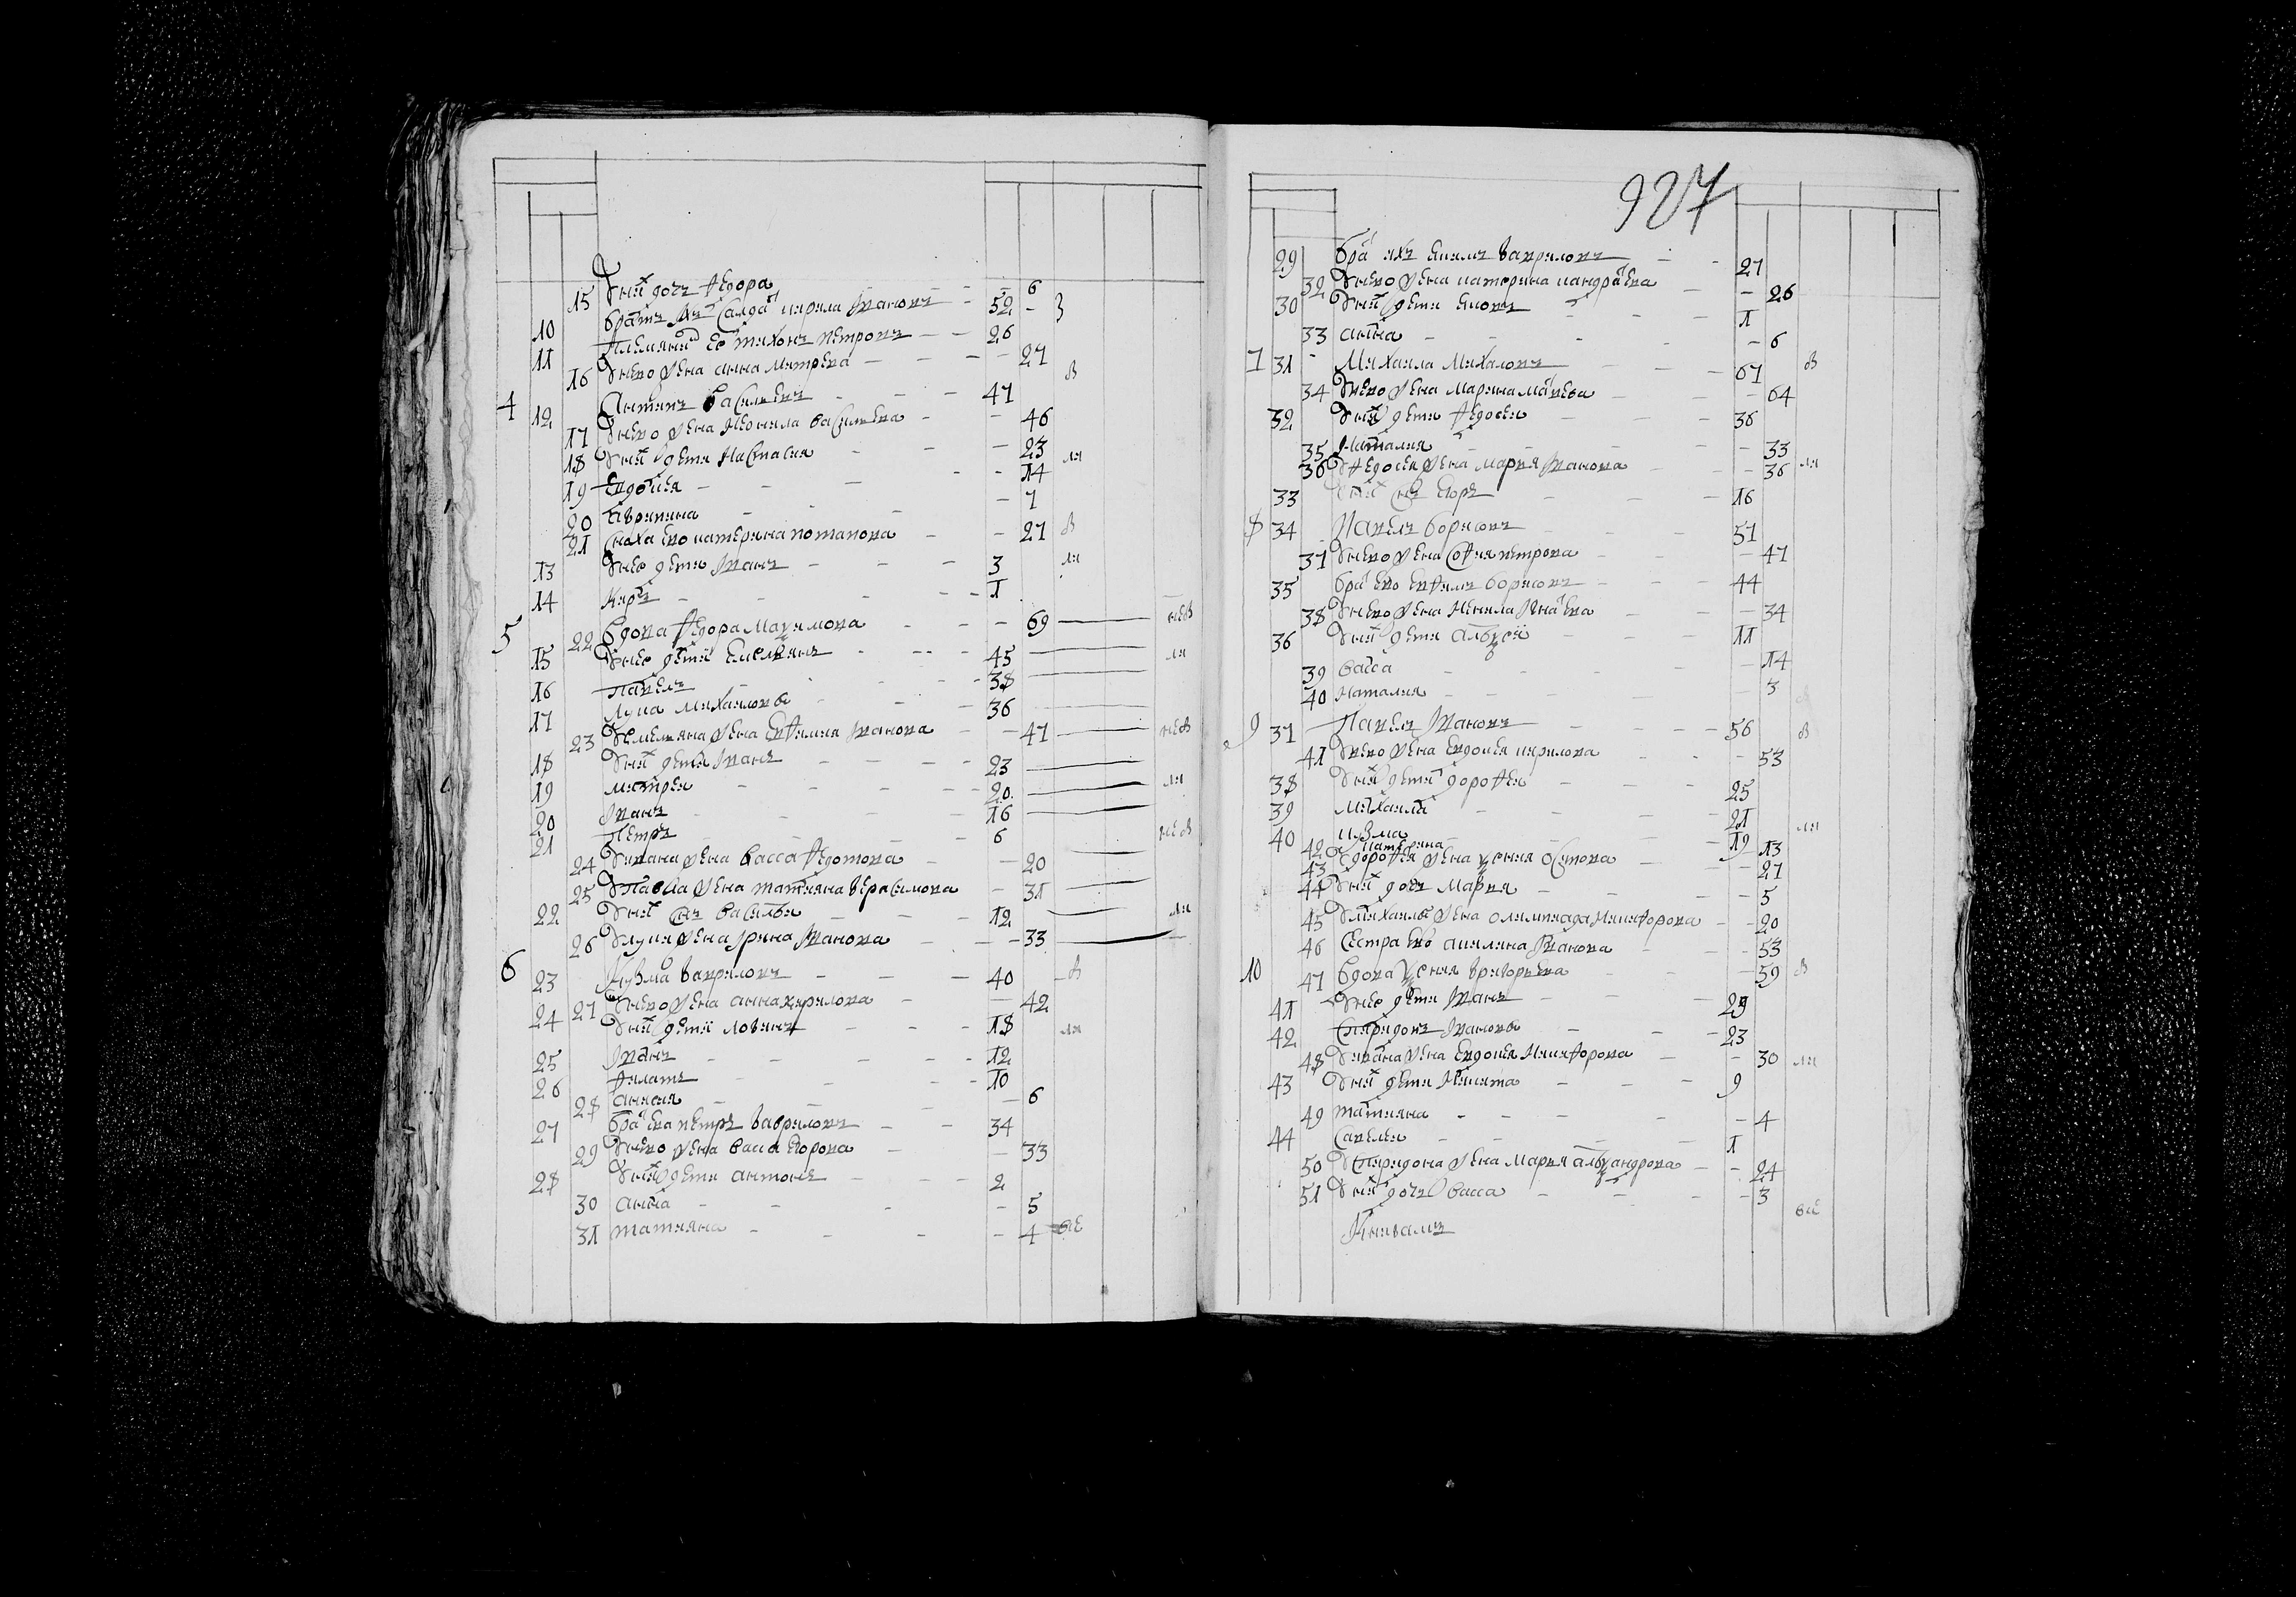 15 У них дочь Федора - - 6
10 братъ их Салда Кирила Иванов - 52 -
11 Племяни ево Тихонъ Петровъ - - 26
16 У нево жена Анна Митрева - - - 27
4 12 Антипъ Васильевъ - - 47 в
17 У нево жена Неонила Васильева - - 46
18 У них дети Настасия - - 23
19 Евдокея - - - - 14 ли
20 Аврапина - - - 7
21 Сноха ево Катерина Потапова - - 27 в
13 У нее дети Иванъ - - - 3 ли
14 Киръ - - - - 1
5 22 Вдова Федора Максимова - - - 69 нев
15 У нее дети Емельянъ - - - 45 ли
16 Павелъ - - - 38
17 Лука Михаиловы - - 36
23 У Емельяна жена Евфимия Иванова - - 47 нев
18 У них дети Иванъ - - - - 23
19 Митрей - - - - 20 ли
20 Иванъ - - - - 16
21 Петръ - - - 6 нев
24 У Ивана жена Васса Федотова - - 20
25 У Павла жена Татияна Герасимова - 31
22 У них снъ Василей - - - 12 ли
26 У Луки жена Ирина Иванова - - - 33
6 23 Кузма Гаврилов - - - 40 - в
27 У нево жена Анна Кирилова - - 42
24 У них дети Логинъ - - - 18 ли
25 Иванъ - - - - - 12
26 Филатъ - - - 10
28 Анисия - - - - 6
27 бра ева Петръ Гаврилов - - 34
29 У нево жена Васса Егорова - - 33
28 У них дети Антонъ - - - 2
30 Анна - - - - 5
31 Татияна - - - - 4 все
927
29 бра их Екимъ Гаврилов - - 27
32 У нево жена Катерина Кандратева - - 26
30 У них дети Еновъ - - - 1
33 Анна - - - - 6
7 31 Михаила Михаловъ - - - 67 в
34 У нево жена Марина Матвева - - 64
32 У них дети Федосеи - - - 36
35 Наталия - - - - 33
36 У Федосея жена Мария Иванова - - - 36 ли
33 У них снъ Егоръ - - - 16
8 34 Павелъ Борисовъ - - - 57
37 У нево жена София Петрова - - - 47
35 бра ево Евфимъ Борисовъ - - - 44
38 У нево жена Ненила Игнатева - - - 34
36 У них дети Алексей - - - 11
39 Васса - - - - 14
40 Наталия - - - - 3
9 37 Павелъ Иванов - - - - 56 в
41 У нево жена Евдокея Кирилова - - - 53
38 У них дети Дорофеи - - - 25
39 Михаила - - - - 21
40 Кузма - - - 19 ли
42 Катерина - - 13
43 У Дорофея жена Ксения Осипова - - - 27
44 У них дочь Мария - - - - 5
45 У Михаилы жена Олимпиада Никифорова - - 20
46 Сестра ево Акилина Иванова - - - 53
10 47 Вдова Ксения Григорьева - - - 59 в
41 У нее дети Иванъ - - - 25
42 Спиридонъ Ивановы - - - 23
48 У Ивана жена Евдокея Никифорова - - 30 ли
43 У них дети Никита - - - 9
49 Татияна - - - - - 4
44 Савелеи - - - 1
50 У Спиридона жена Мария Александрова - - 24
51 У них дочь Васса - - - - 3 все